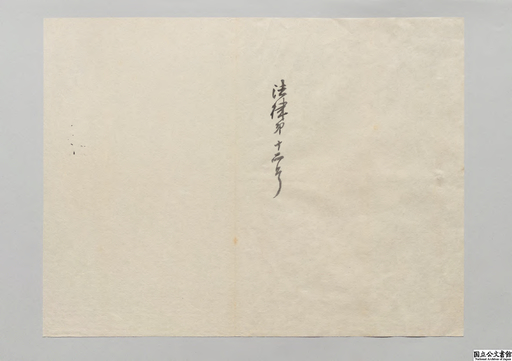 法律第十二号
国立公文書館
National Archives of Japan